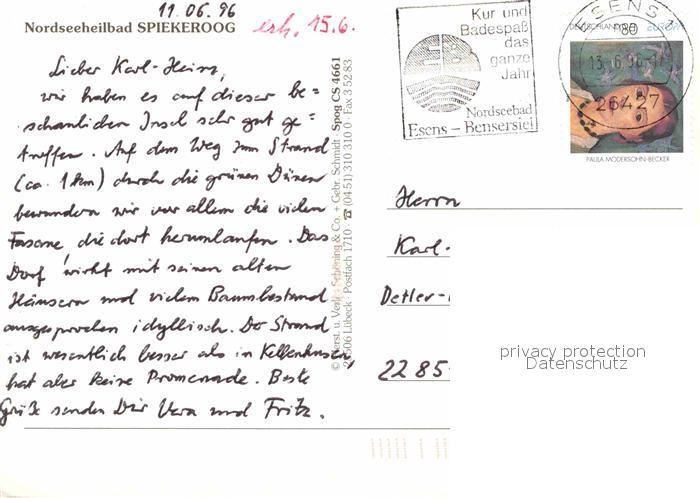 11.06.96
Nordseeheilbad SPIEKEROOG
erh. 15.6.
Lieber Karl-Heinz,
wir haben es auf dieser be=
schaulichen Insel sehr gut ge=
troffen. Auf dem Weg zum Strand
(ca. 1 km) durch die grünen Dünen
bewundern wir vor allem die vielen
Fasane, die dort herumlaufen. Das
Dorf wirkt mit seinen alten
Häusern und vielem Baumbestand
ausgesprochen idyllisch. Der Strand
ist wesentlich besser als in Kellenhusen,
hat aber keine Promenade. Beste
Grüße senden Dir Vera und Fritz.
© Herst. u. Verlag Schöning & Co. + Gebr. Schmidt · Spog CS 4661
23506 Lübeck · Postfach 1710 · ☎ (04 51) 310 310 · Fax 3 52 83
Kur und
Badespaß
das
ganze
Jahr
EB
Nordseebad
Esens – Bensersiel
ESENS
13.-6.96-17
26427
DEUTSCHLAND
80
europa
PAULA MODERSOHN-BECKER
Herrn
Karl-
Detlev-
2285
privacy protection
Datenschutz